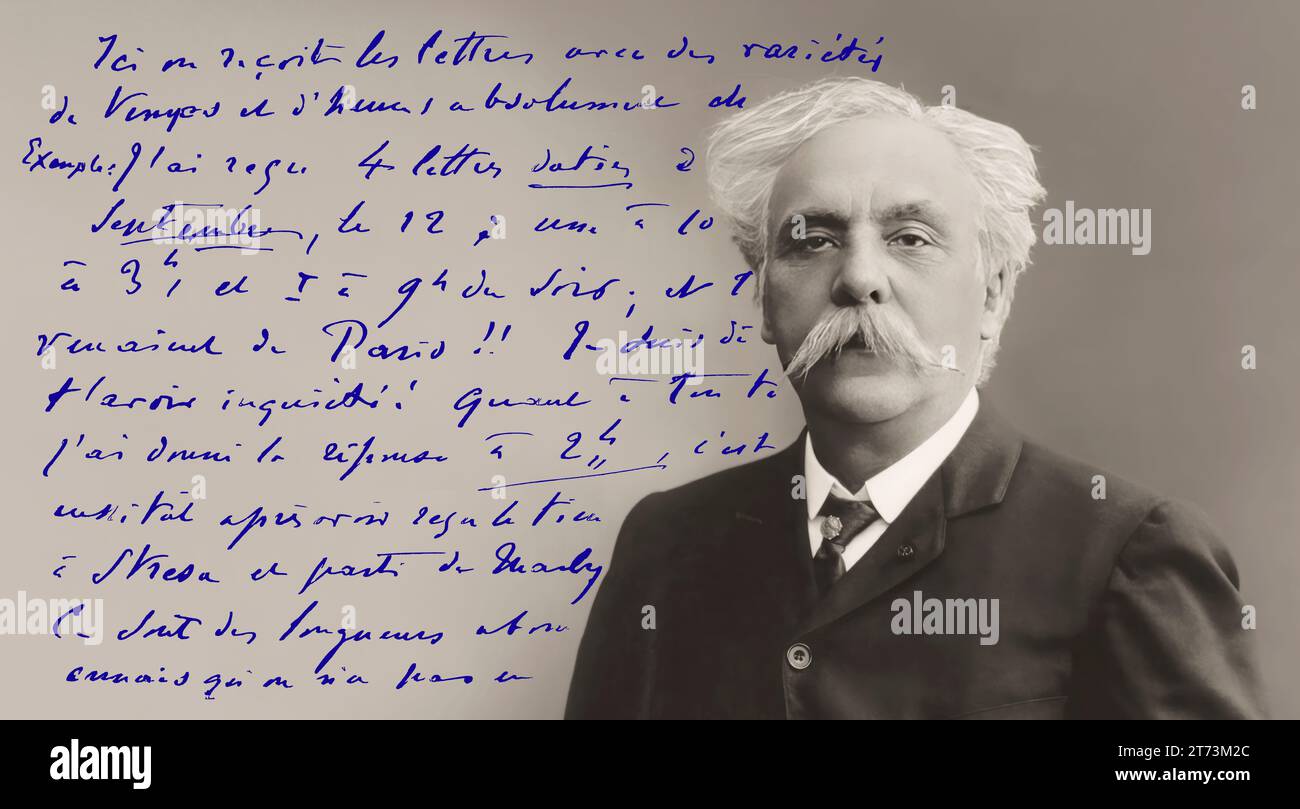 Ici on reçoit les lettres avec des variétés
de temps et d'heures absolument
Exemple: J'ai reçu 4 lettres datées 2
Septembre, le 12 ; une à 10
à 3h, et I à 9h du soir; et 1
venaient de Paris !! Je suis dé
t'avoir inquiété! Quant à ton té
j'ai donné la réponse à 2h, c'est
aussitôt après avoir reçu le tien
à Stresa et parti de Marly
Ce sont des longueurs
ennuis qu'on n'a pas
alamy
alamy
Image ID: 2T73M2C
www.alamy.com